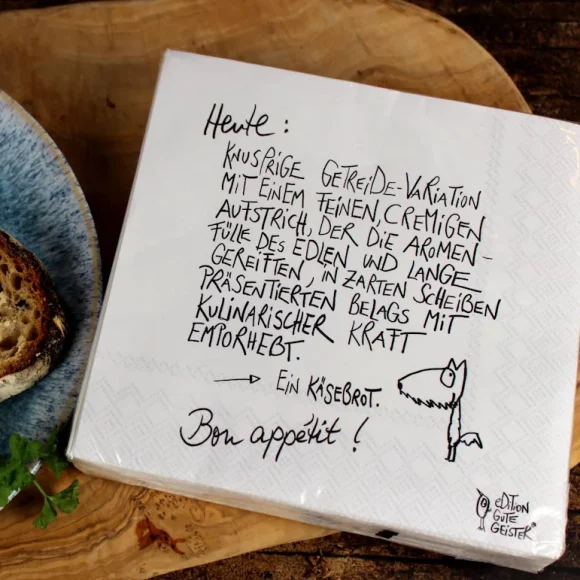 Heute:
KNUSPRIGE GETREIDE-VARIATION
MIT EINEM FEINEN, CREMIGEN
AUFSTRICH, DER DIE AROMEN-
FÜLLE DES EDLEN UND LANGE
GEREIFTEN, IN ZARTEN SCHEIBEN
PRÄSENTIERTEN BELAGS MIT
KULINARISCHER KRAFT
EMPORHEBT.
→ EIN KÄSEBROT.
Bon appétit!
EDITION
GUTE
GEISTER®